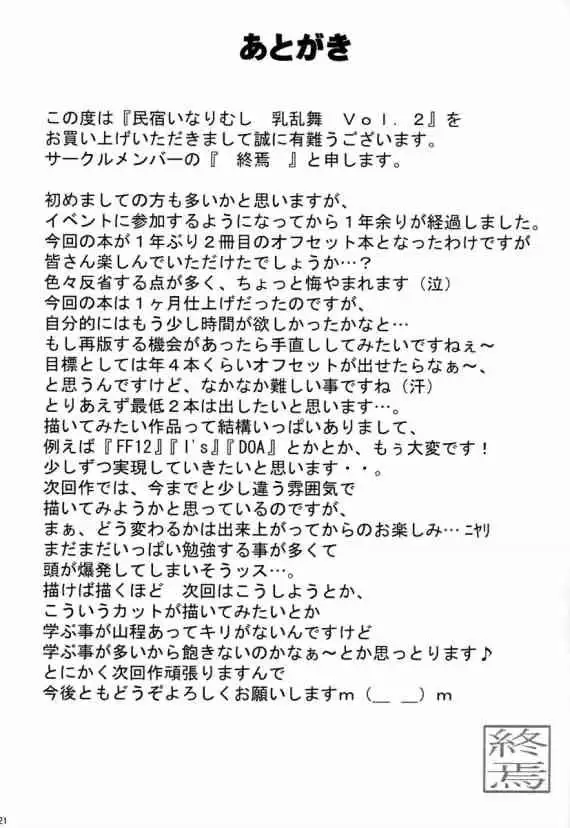 あとがき
この度は『民宿いなりむし　乳乱舞　Ｖｏｌ．２』を
お買い上げいただきまして誠に有難うございます。
サークルメンバーの『　終焉　』と申します。
初めましての方も多いかと思いますが、
イベントに参加するようになってから１年余りが経過しました。
今回の本が１年ぶり２冊目のオフセット本となったわけですが
皆さん楽しんでいただけたでしょうか…？
色々反省する点が多く、ちょっと悔やまれます（泣）
今回の本は１ヶ月仕上げだったのですが、
自分的にはもう少し時間が欲しかったかなと…
もし再版する機会があったら手直ししてみたいですねぇ～
目標としては年４本くらいオフセットが出せたらなぁ～、
と思うんですけど、なかなか難しい事ですね（汗）
とりあえず最低２本は出したいと思います…。
描いてみたい作品って結構いっぱいありまして、
例えば『FF12』『I's』『DOA』とかとか、もぅ大変です！
少しずつ実現していきたいと思います・・。
次回作では、今までと少し違う雰囲気で
描いてみようかと思っているのですが、
まぁ、どう変わるかは出来上がってからのお楽しみ…ﾆﾔﾘ
まだまだいっぱい勉強する事が多くて
頭が爆発してしまいそうッス…。
描けば描くほど　次回はこうしようとか、
こういうカットが描いてみたいとか
学ぶ事が山程あってキリがないんですけど
学ぶ事が多いから飽きないのかなぁ～とか思っとります♪
とにかく次回作頑張りますんで
今後ともどうぞよろしくお願いしますｍ（＿　＿）ｍ
終
焉
21